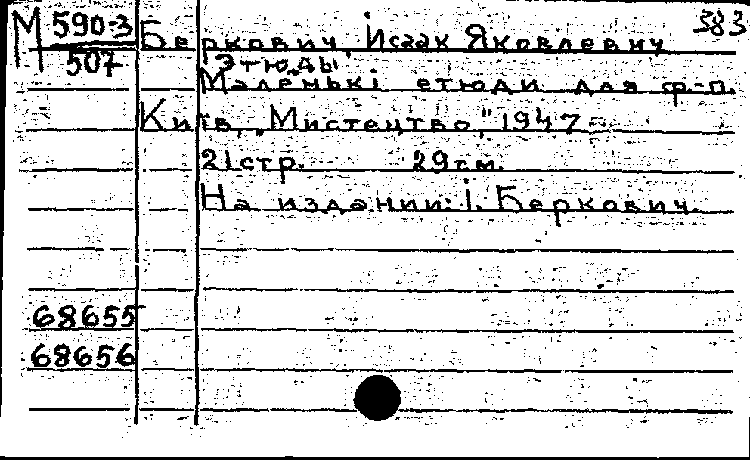 М 590-3 Беркович, Исаак Яковлевич 383
507 Этюды
Маленькі етюди для ф-п.
Київ, „Мистецтво," 1947
21стр. 29см.
На издании: І. Беркович.
68655
68656